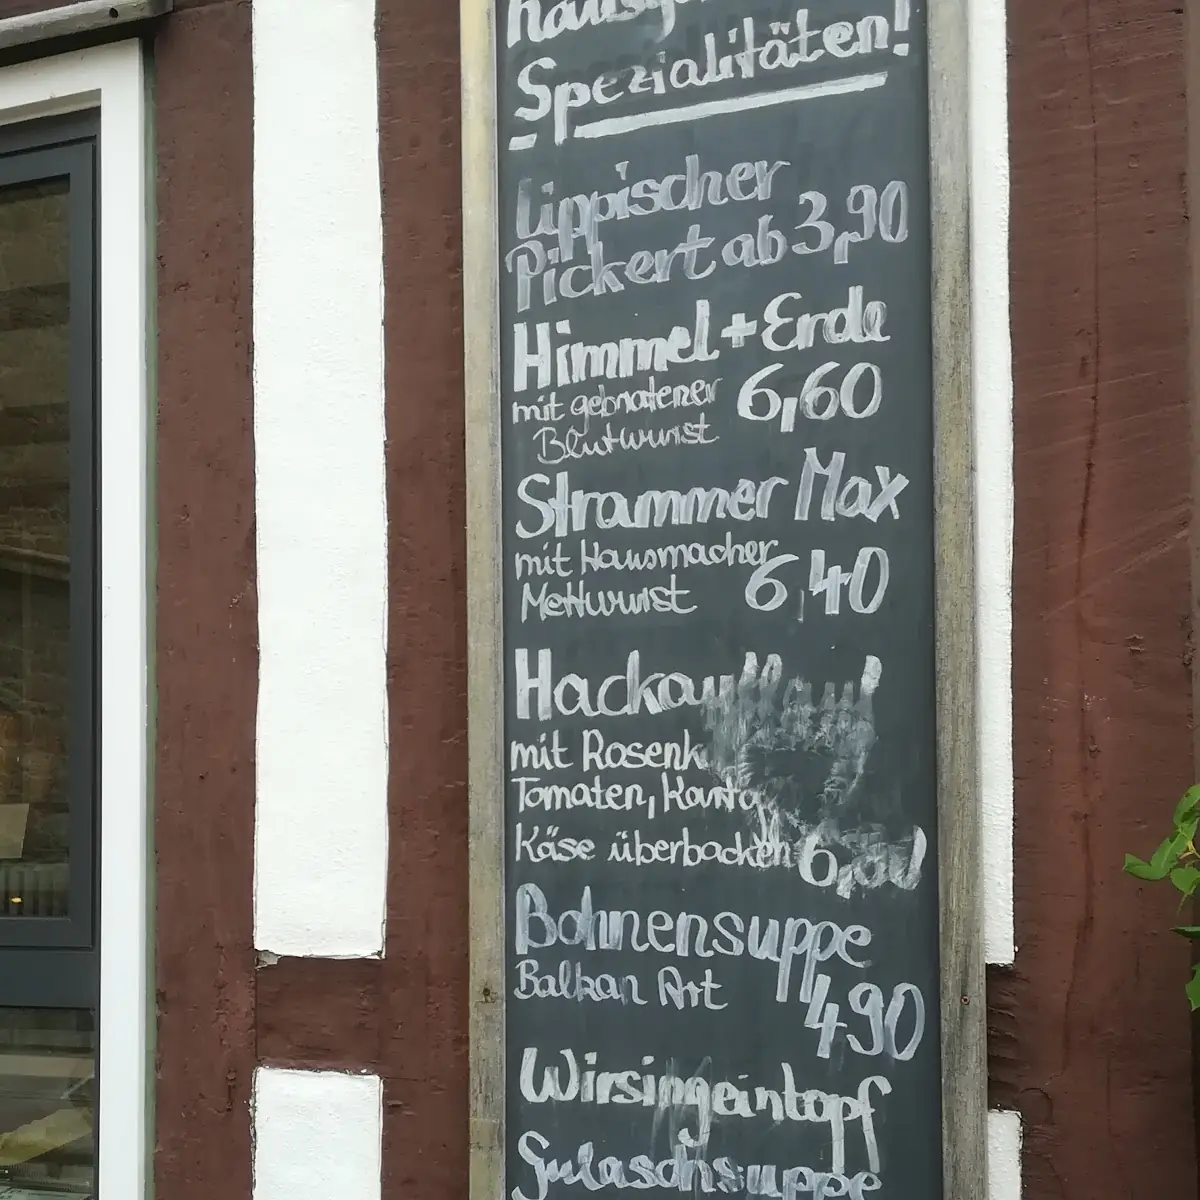 Spezialitäten!
Lippischer
Pickert ab 3,90
Himmel + Erde
mit gebratener 6,60
Blutwurst
Strammer Max
mit Hausmacher
Mettwurst 6,40
Hackauflauf
mit
Tomaten,
Käse überbacken
Bohnensuppe
Balkan Art
4,90
Wirsingeintopf
Gulaschsuppe